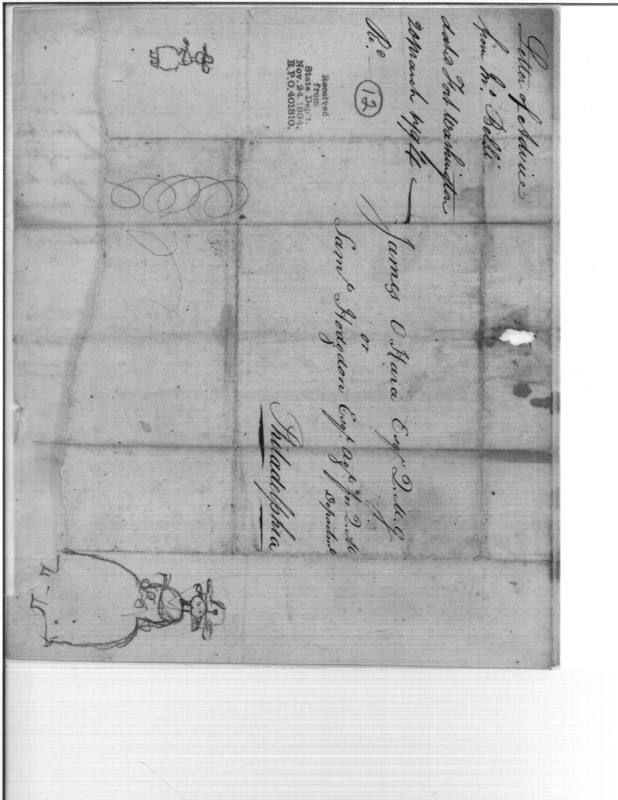 Letter of Advice
from Mr. Belli
dated Fort Washington
20 March 1794
(12)
Received
from
State Dep't.
Nov. 24, 1894.
R.P.O. 401810.
James O Hara Esqr. Q.M.G.
or
Saml. Hodgdon Esqr. agt. for Q.M
Department
Philadelphia